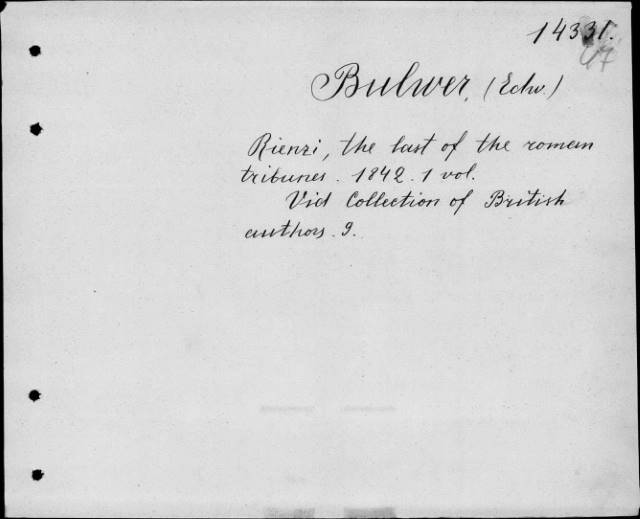 14331.
Bulwer, (Edw.)
Rienzi, the last of the roman
tribunes. 1842. 1 vol.
Vid Collection of British
authors. 9.